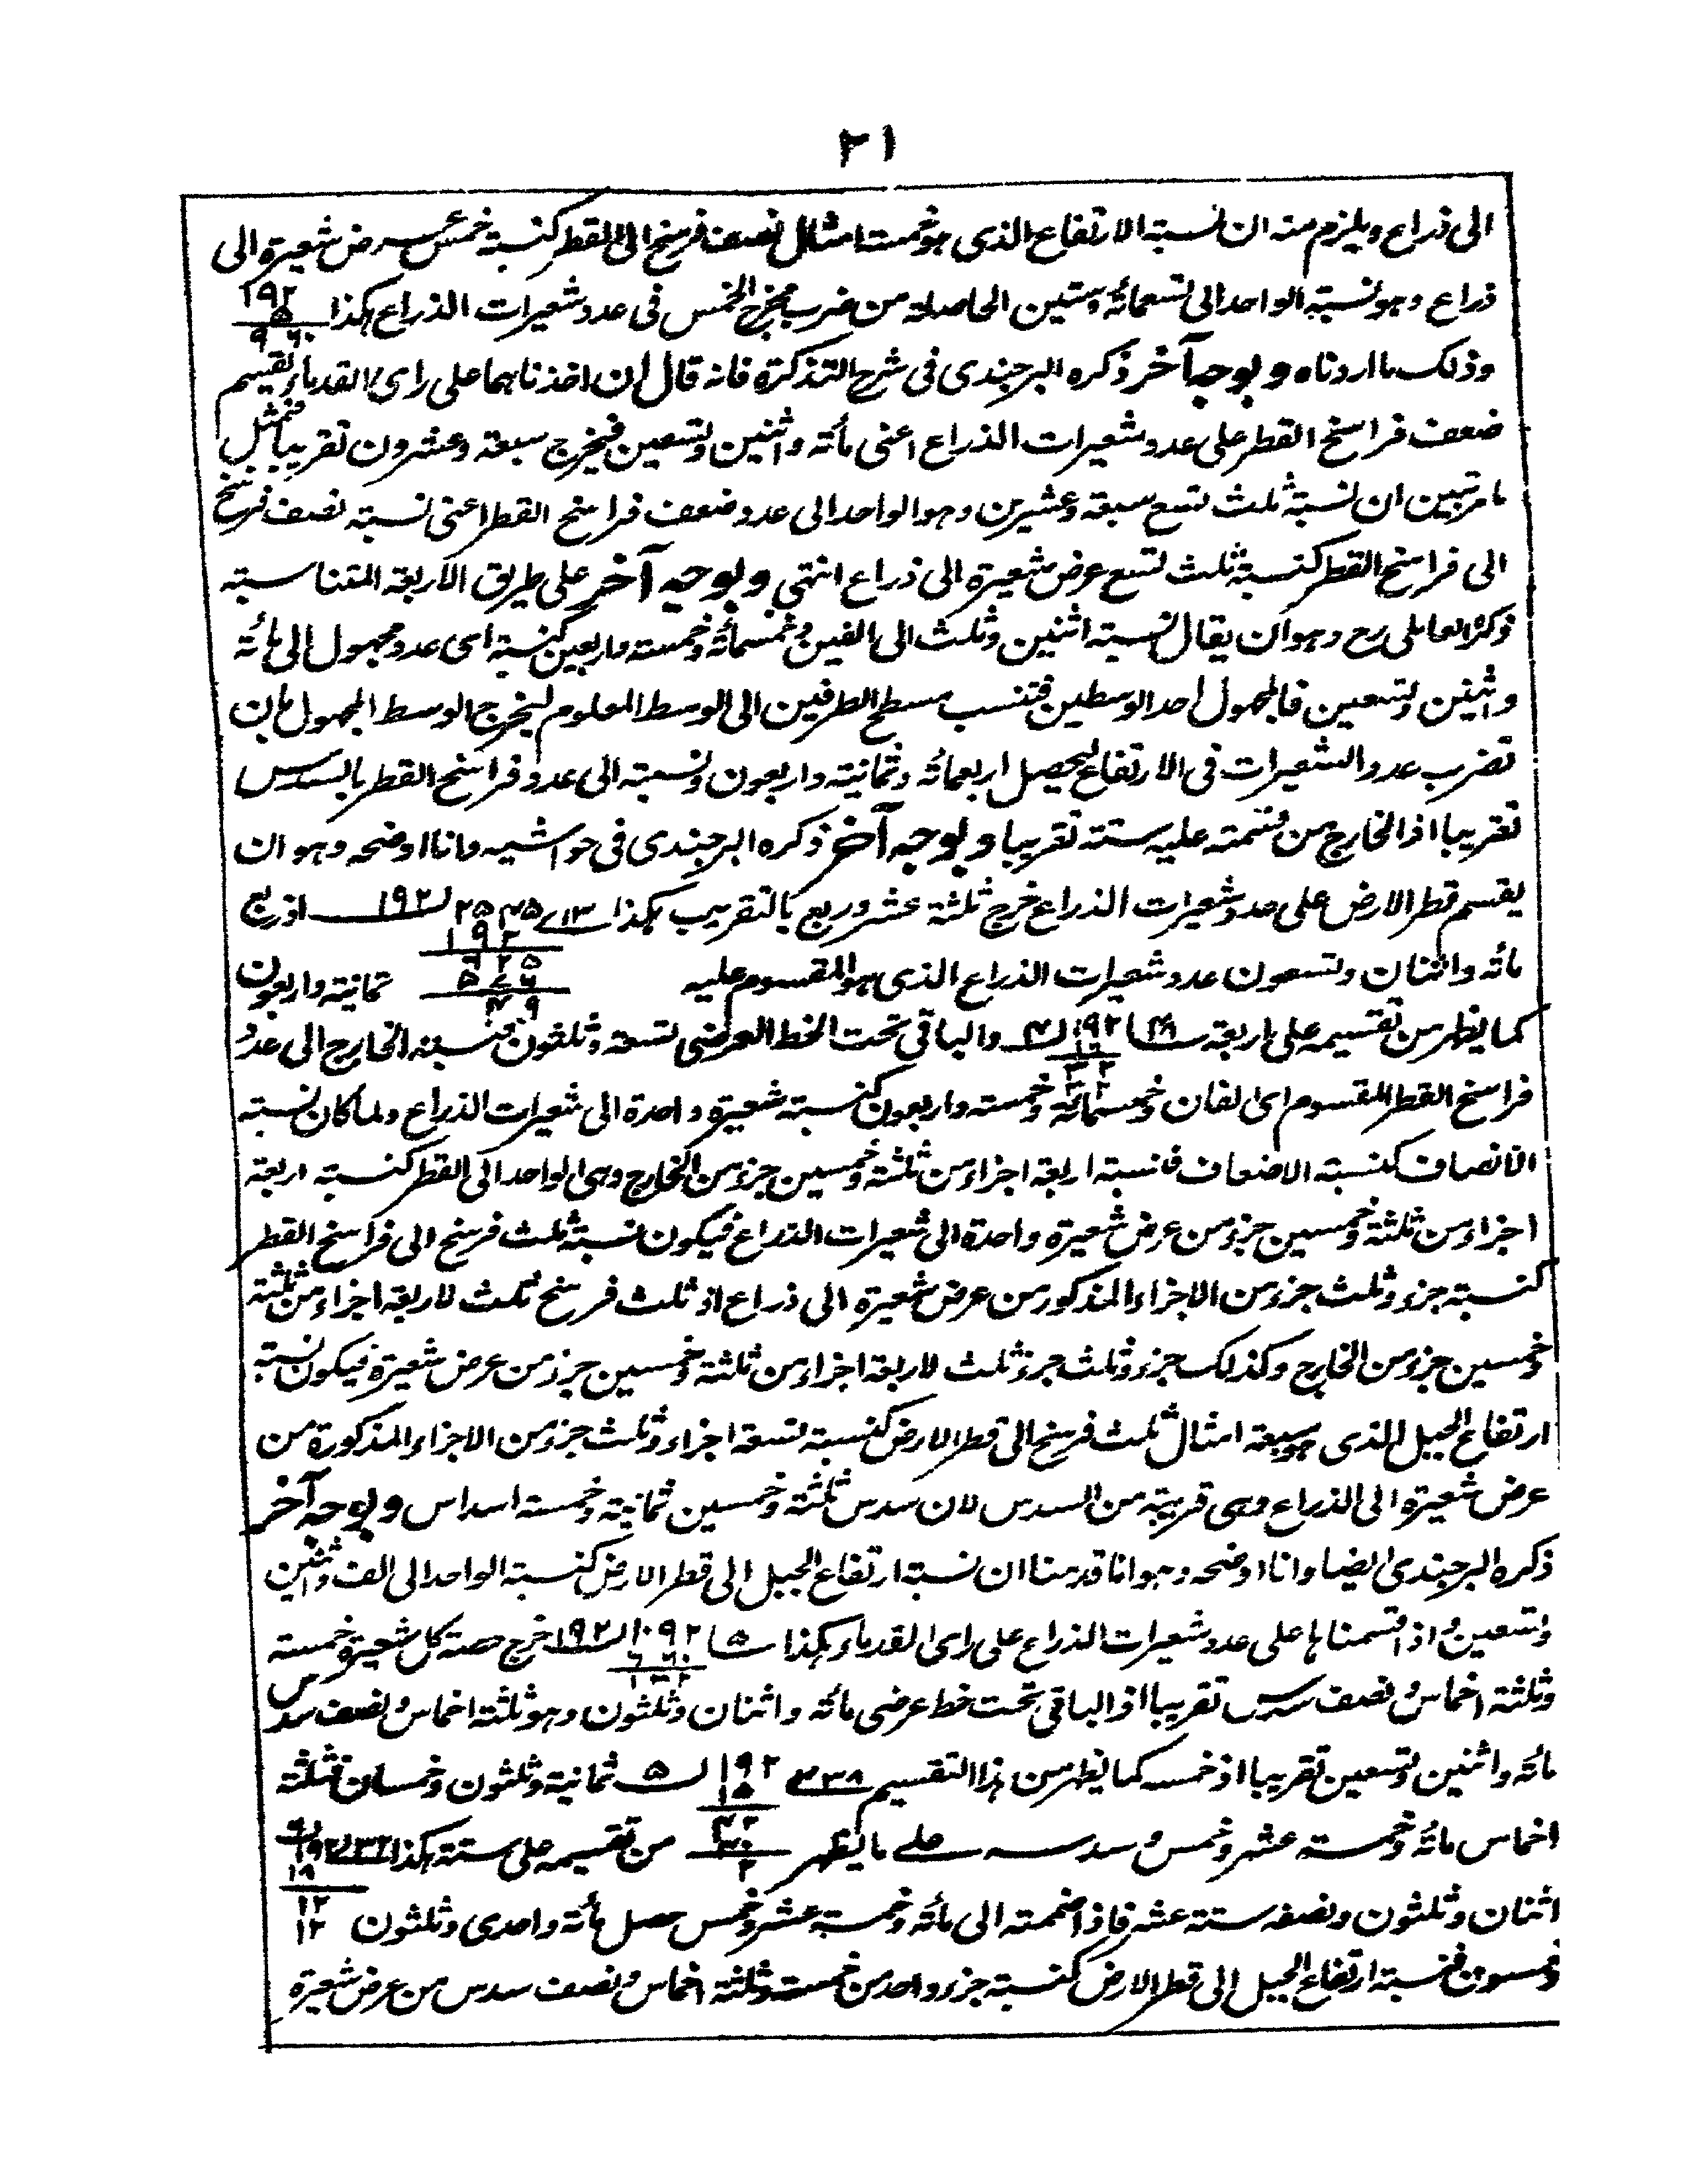 ٢١
الى ذراع ويلزم منه ان نسبة الارتفاع الذى هو خمسة امثال نصف فرسخ الى القطر كنسبة خمس عرض شعيرة الى
ذراع وهو نسبة الواحد الى تسعمائة وستين الحاصلة من ضرب مخرج الخمس فى عدد شعيرات الذراع هكذا ١٩٢
٥
٩٦٠
وذلك ما اردناه وبوجه آخر ذكره البرجندى فى شرح التذكرة فانه قال ان اخذناهما على راى القدماء نقسم
ضعف فراسخ القطر على عدد شعيرات الذراع اعنى مأته واثنين وتسعين فيخرج سبعة وعشرون تقريبا فبمثل
ما مر تبين ان نسبة ثلث تسع سبعة وعشرين وهو الواحد الى عدد ضعف فراسخ القطر اعنى نسبة نصف فرسخ
الى فراسخ القطر كنسبة ثلث تسع عرض شعيرة الى ذراع انتهى وبوجه آخر على طريق الاربعة المتناسبة
ذكره العاملى رح وهو ان يقال نسبة اثنين وثلث الى الفين وخمسمائة وخمسة واربعين كنسبة اى عدد مجهول الى مائة
واثنين وتسعين فالمجهول احد الوسطين فتنسب مسطح الطرفين الى الوسط المعلوم ليخرج الوسط المجهول بان
تضرب عدد الشعيرات فى الارتفاع ليحصل اربعمائة وثمانية واربعون ونسبته الى عدد فراسخ القطر بالسدس
تقريبا اذ الخارج من قسمته عليه ستة تقريبا وبوجه آخر ذكره البرجندى فى حواشيه وانا اوضحه وهو ان
يقسم قطر الارض على عدد شعيرات الذراع خرج ثلثة عشر وربع بالتقريب هكذا ١٣ ٢٥٤٥ ١٩٢ اذ ربع
١٩٢
مائة واثنان وتسعون عدد شعيرات الذراع الذى هو المقسوم عليه ٦٢٥ ٥٧٦ ٤٩ ثمانية واربعون
كما يظهر من تقسيمه على اربعة ٤٨ ١٩٢ ٤ والباقى تحت الخط العرضى تسعة وثلثون فنسبة الخارج الى عدد
١٦
٣٢
فراسخ القطر المقسوم اى الفان وخمسمائة وخمسة واربعون كنسبة شعيرة واحدة الى شعيرات الذراع ولما كان نسبة
الانصاف كنسبة الاضعاف فانسبة اربعة اجزاء من ثلثة وخمسين جزء من الخارج وهى الواحد الى القطر كنسبة اربعة
اجزاء من ثلثة وخمسين جزء من عرض شعيرة واحدة الى شعيرات الذراع فيكون نسبة ثلث فرسخ الى فراسخ القطر
كنسبة جزء وثلث جزء من الاجزاء المذكور من عرض شعيرة الى ذراع اذ ثلث فرسخ ثلث لاربعة اجزاء من ثلثة
وخمسين جزء من الخارج وكذلك جزء وثلث جزء ثلث لاربعة اجزاء من ثلثة وخمسين جزء من عرض شعيرة فيكون نسبة
ارتفاع الجبل الذى هو سبعة امثال ثلث فرسخ الى قطر الارض كنسبة تسعة اجزاء وثلث جزء من الاجزاء المذكورة من
عرض شعيرة الى الذراع وهى قريبة من السدس لان سدس ثلثة وخمسين ثمانية وخمسة اسداس وبوجه آخر
ذكره البرجندى ايضا وانا اوضحه وهو انا قدمنا ان نسبة ارتفاع الجبل الى قطر الارض كنسبة الواحد الى الف واثنين
وتسعين اذا قسمناها على عدد شعيرات الذراع على راى القدماء هكذا ٥ ١٠٩٢ ١٩٢ خرج حصة كل شعيرة خمسة
٩٦٠
١٣٢
وثلثة اخماس ونصف سدس تقريبا اذ الباقى تحت خط عرضى مائة واثنان وثلثون وهو ثلثة اخماس ونصف سدس
مائة واثنين وتسعين تقريبا اذ خمسه كما يظهر من هذا التقسيم ٣٨ ١٩٢ ٥ ثمانية وثلثون وخمسان فثلثة
١٥
٤٢
اخماس مائة وخمسة عشر وخمس وسدسه على ما يظهر ٤٠ ٢ من تقسيمه على ستة هكذا ٣٢ ١٩٢ ٦
١٨
اثنان وثلثون ونصفه ستة عشر فاذا ضممته الى مائة وخمسة عشر وخمس حصل مأتة واحدى وثلثون ١٢
١٢
وخمسون فنسبة ارتفاع الجبل الى قطر الارض كنسبة جزء واحد من خمسة وثلثة اخماس ونصف سدس من عرض شعيرة